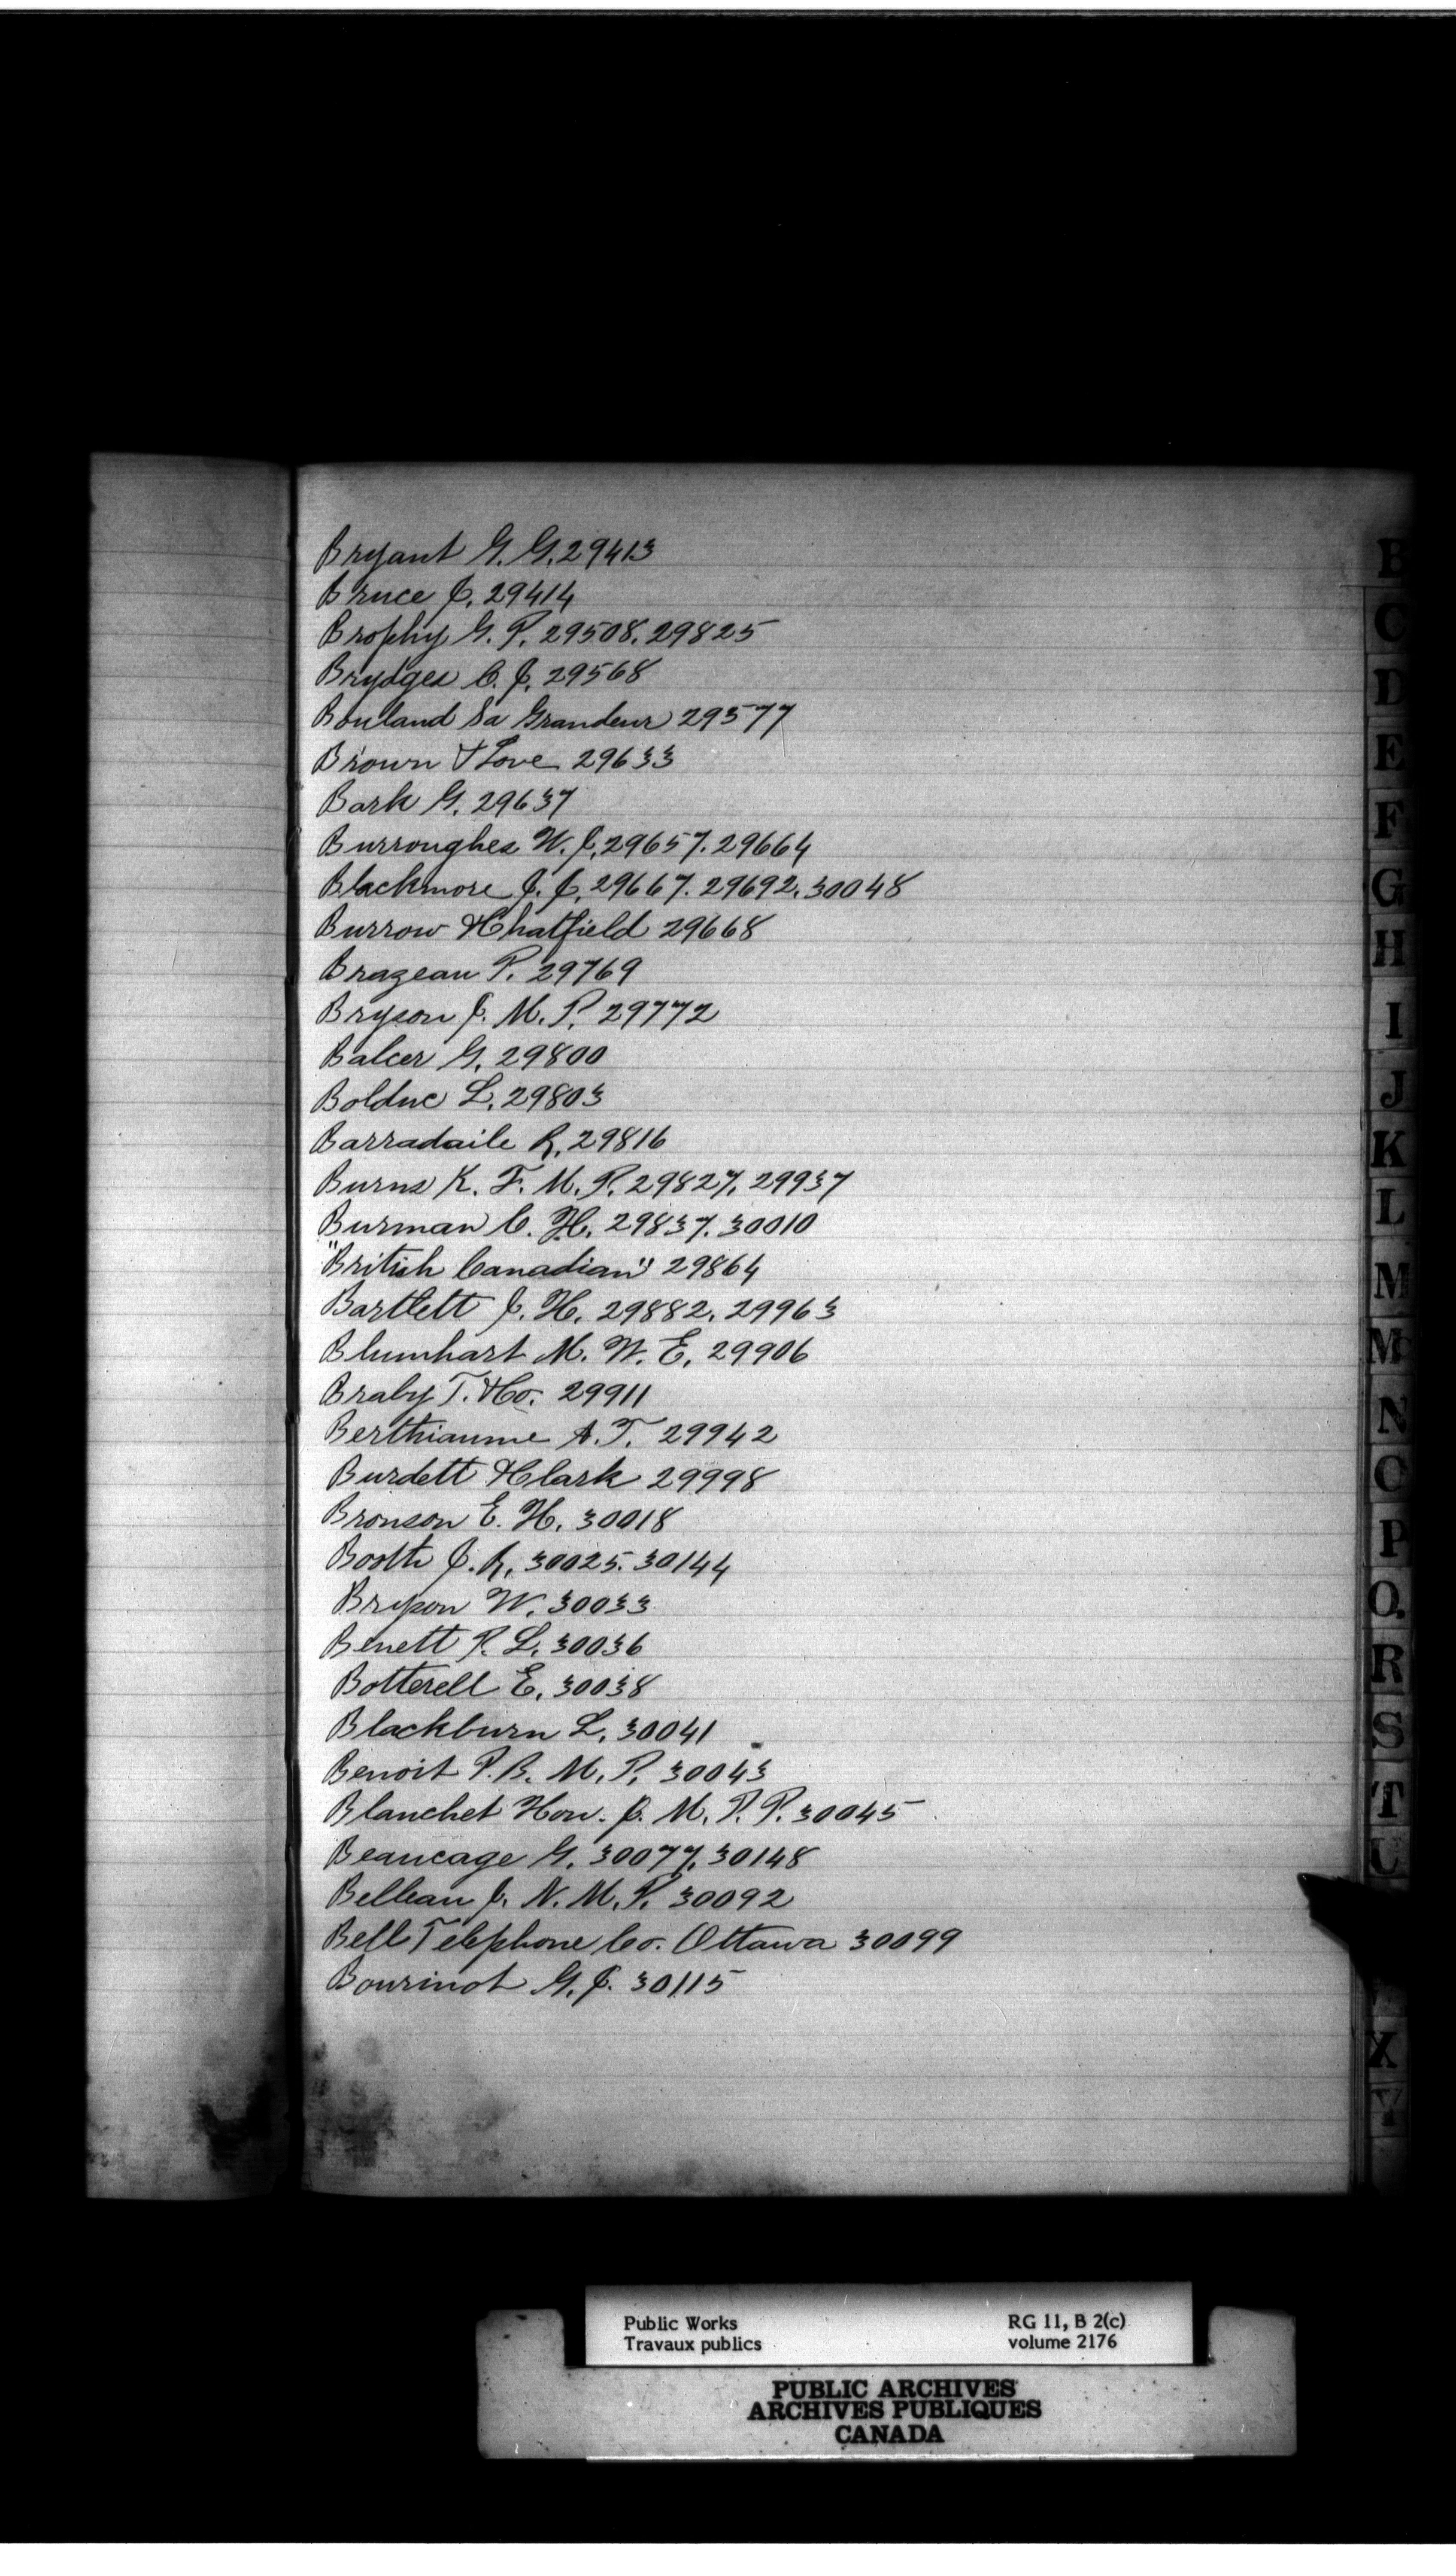 Bryant G. G. 29413
Bruce J. 29414
Brophy G. P. 29508. 29825
Brydges C. J. 29568
Bouland Sa Grandeur 29577
Brown & Love 29633
Bark G. 29637
Burroughes W. J. 29657. 29664
Blackmore J. J. 29667. 29692. 30048
Burrow & Chatfield 29668
Brazeau P. 29769
Bryson J. M. P. 29772
Balcer G. 29800
Bolduc L. 29803
Barradaile R. 29816
Burns K. F. M. P. 29827. 29937
Burman C. H. 29837. 30010
"British Canadian" 29864
Bartlett J. H. 29882. 29963
Blumhart M. W. E. 29906
Braby T. & Co. 29911
Berthiaume A. T. 29942
Burdett & Clark 29998
Bronson E. H. 30018
Booth J. R. 30025. 30144
Bryson W. 30033
Benett P. L. 30036
Botterell E. 30038
Blackburn L. 30041
Benoit P. B. M. P. 30043
Blanchet Hon. J. M. P. P. 30045
Beaucage G. 30077. 30148
Belleau J. N. M. P. 30092
Bell Telephone Co. Ottawa 30099
Bourinot G. J. 30115
B
C
D
E
F
G
H
I
J
K
L
M
Mc
N
O
P
Q.
R
S
T
U
X
Y
Public Works RG 11, B 2(c)
Travaux publics volume 2176
PUBLIC ARCHIVES
ARCHIVES PUBLIQUES
CANADA